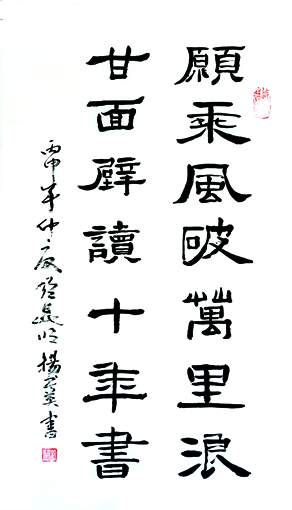 願乘風破萬里浪
甘面壁讀十年書
丙申年仲夏 楊 書